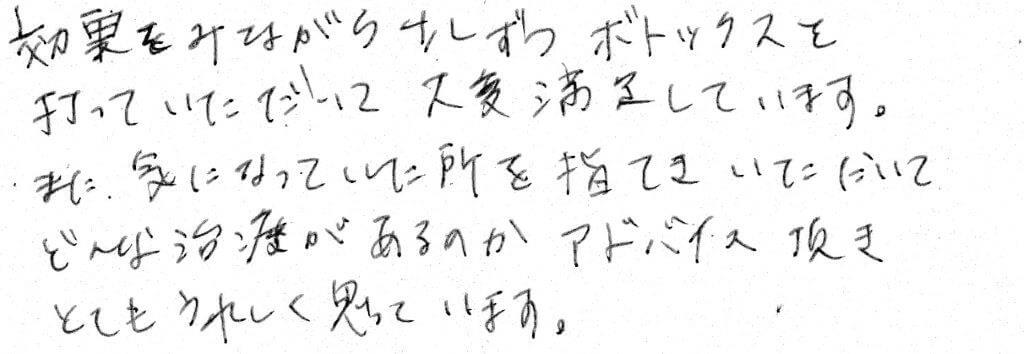 効果をみながら少しずつ ボトックスを
打っていただいて 大変満足しています。
また、気になっていた所を指てきいただいて
どんな治療があるのか アドバイス頂き
とてもうれしく思っています。